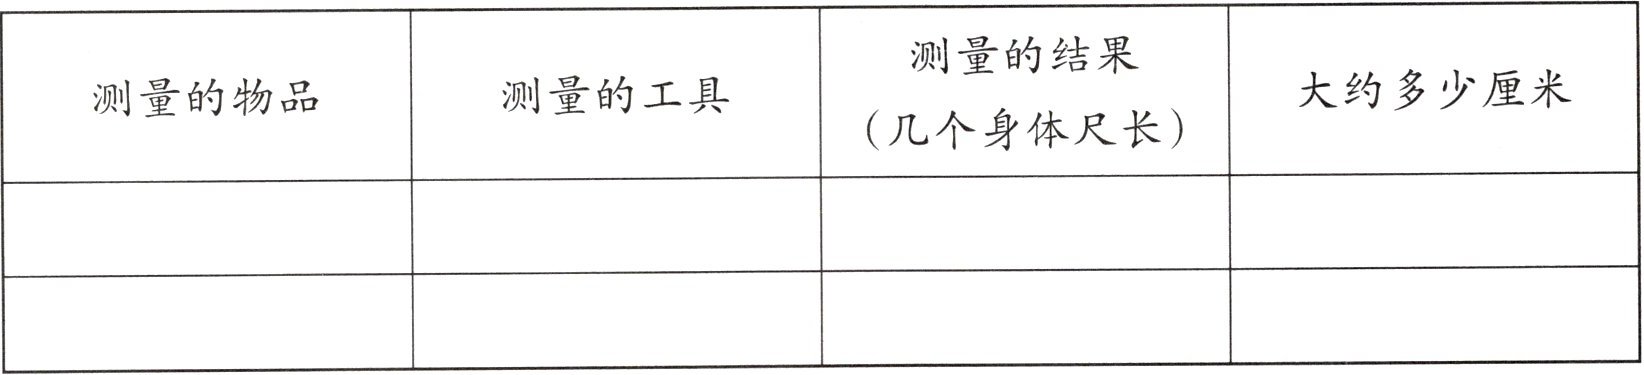 测量的物品
测量的工具
测量的结果
（几个身体尺长）
大约多少厘米